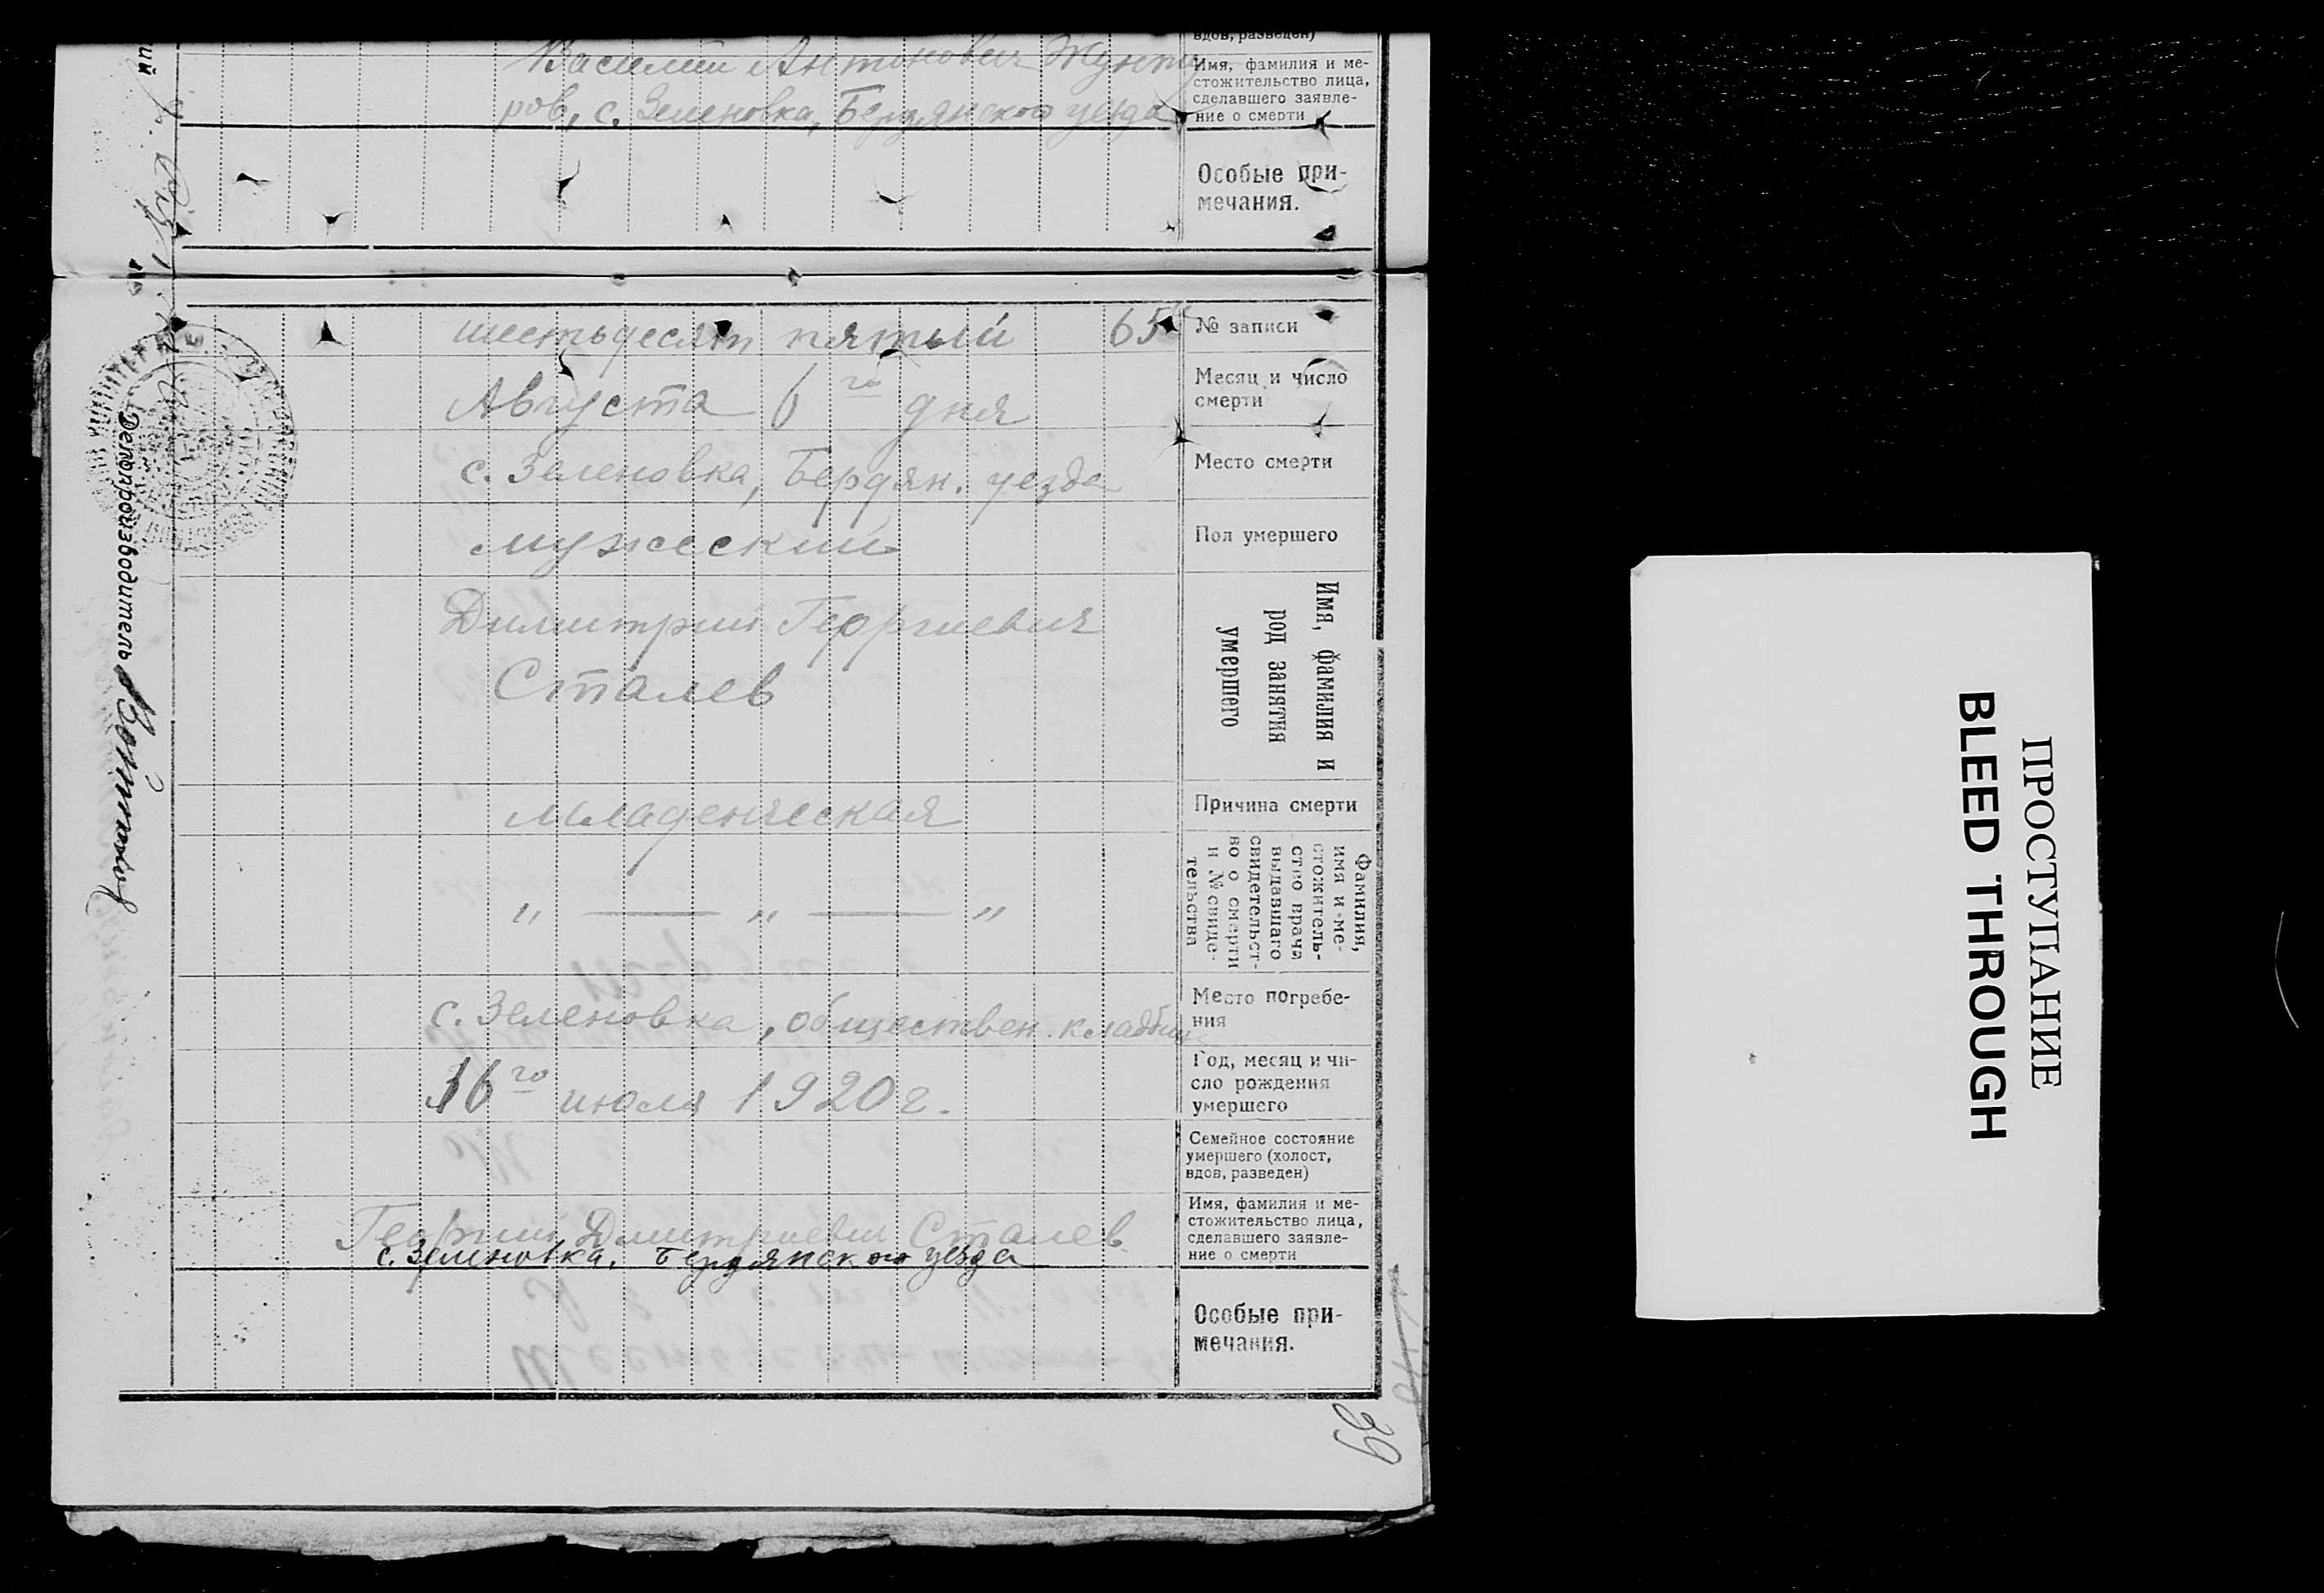 вдов, разведен)
Василий Антонович
ров, с. Зеленовка, Бердянского уезда
Имя, фамилия и ме-
стожительство лица,
сделавшего заявле-
ние о смерти
Особые при-
мечания.
шестьдесят пятый 65
№ записи
Августа 6го дня
Месяц и число
смерти
с. Зеленовка, Бердян. уезда
Место смерти
мужеский
Пол умершего
Димитрий Георгиевич
Сталев
Имя, фамилия и
род занятия
умершего
младенческая
Причина смерти
" — " — "
Фамилия,
имя и ме-
стожитель-
ство врача
выдавшаго
свидетельст-
во о смерти
и № свиде-
тельства
с. Зеленовка, обществен. кладбищ
Место погребе-
ния
16го июля 1920 г.
Год, месяц и чи-
сло рождения
умершего
Семейное состояние
умершего (холост,
вдов, разведен)
Георгий Димитриевич Сталев
с. Зеленовка, Бердянского уезда
Имя, фамилия и ме-
стожительство лица,
сделавшего заявле-
ние о смерти
Особые при-
мечания.
Делопроизводитель
39
ПРОСТУПАНИЕ
BLEED THROUGH